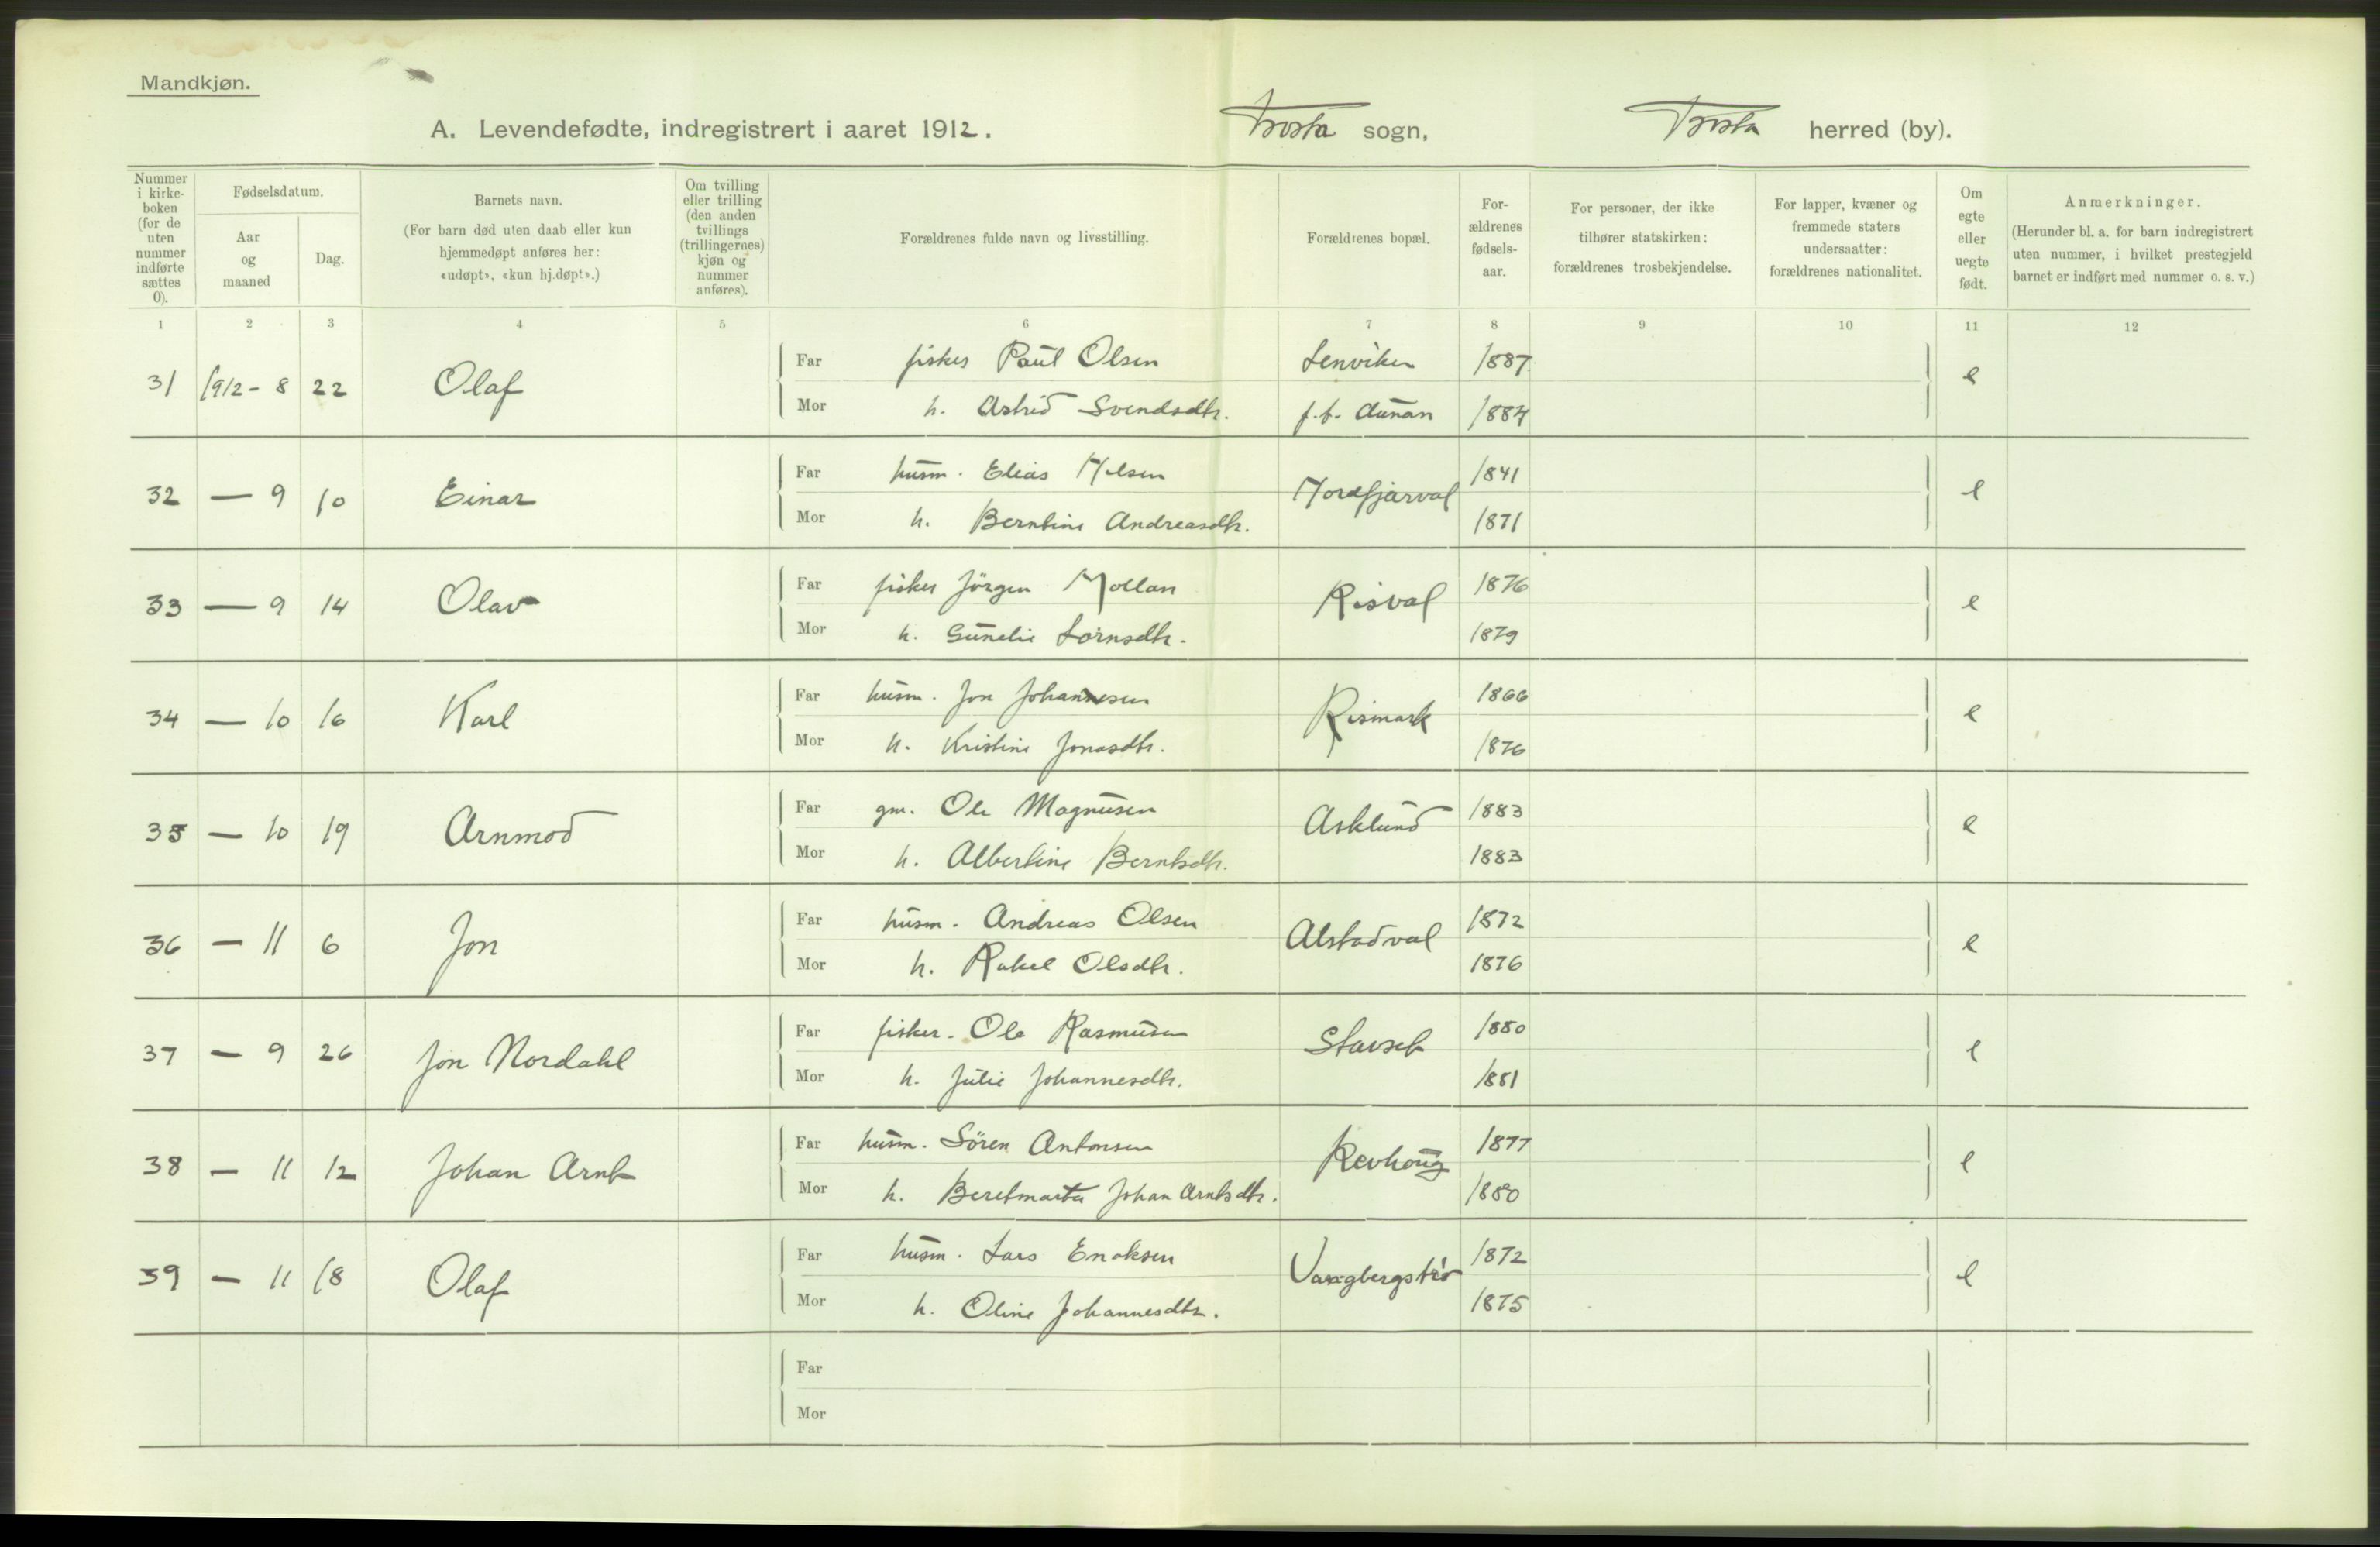 Mandkjøn.
A. Levendefødte, indregistrert i aaret 1912. Frosta sogn, Frosta herred (by).
Nummer i kirkeboken (for de uten nummer indførte sættes 0).
Fødselsdatum.
Aar og maaned
Dag.
Barnets navn.
(For barn død uten daab eller kun hjemmedøpt anføres her: «udøpt», «kun hj.døpt».)
Om tvilling eller trilling (den anden tvillings (trillingernes) kjøn og nummer anføres).
Forældrenes fulde navn og livsstilling.
Forældrenes bopæl.
Forældrenes fødselsaar.
For personer, der ikke tilhører statskirken: forældrenes trosbekjendelse.
For lapper, kvæner og fremmede staters undersaatter: forældrenes nationalitet.
Om egte eller uegte født.
Anmerkninger.
(Herunder bl. a. for barn indregistrert uten nummer, i hvilket prestegjeld barnet er indført med nummer o. s. v.)
1 2 3 4 5 6 7 8 9 10 11 12
31 1912 - 8 22 Olaf Far fisker Paul Olsen Lenviken 1887 e
Mor h. Astrid Svendsdtr. f.b. Aunan 1884
32 — 9 10 Einar Far husm. Elias Nelsen 1841 e
Mor h. Berntine Andreasdtr. 1871
33 — 9 14 Olav Far fisker Jörgen Mollan Risval 1876 e
Mor h. Gunelie Lornsdtr. 1879
34 — 10 16 Karl Far husm. Jon Johannesen Rismark 1866 e
Mor h. Kristine Jonasdtr. 1876
35 — 10 19 Arnmod Far gm. Ole Magnusen Asklund 1883 e
Mor h. Albertine Berntsdtr. 1883
36 — 11 6 Jon Far husm. Andreas Olsen Alstadval 1872 e
Mor h. Rakel Olsdtr. 1876
37 — 9 26 Jon Nordahl Far fisker. Ole Rasmusen Stavset 1880 e
Mor h. Julie Johannesdtr. 1881
38 — 11 12 Johan Arnt Far husm. Sören Antonsen Revhoug 1877 e
Mor h. Beretmarta Johan Arntsdtr. 1880
39 — 11 18 Olaf Far husm. Lars Enoksen 1872 e
Mor h. Oline Johannesdtr. 1875
Far
Mor